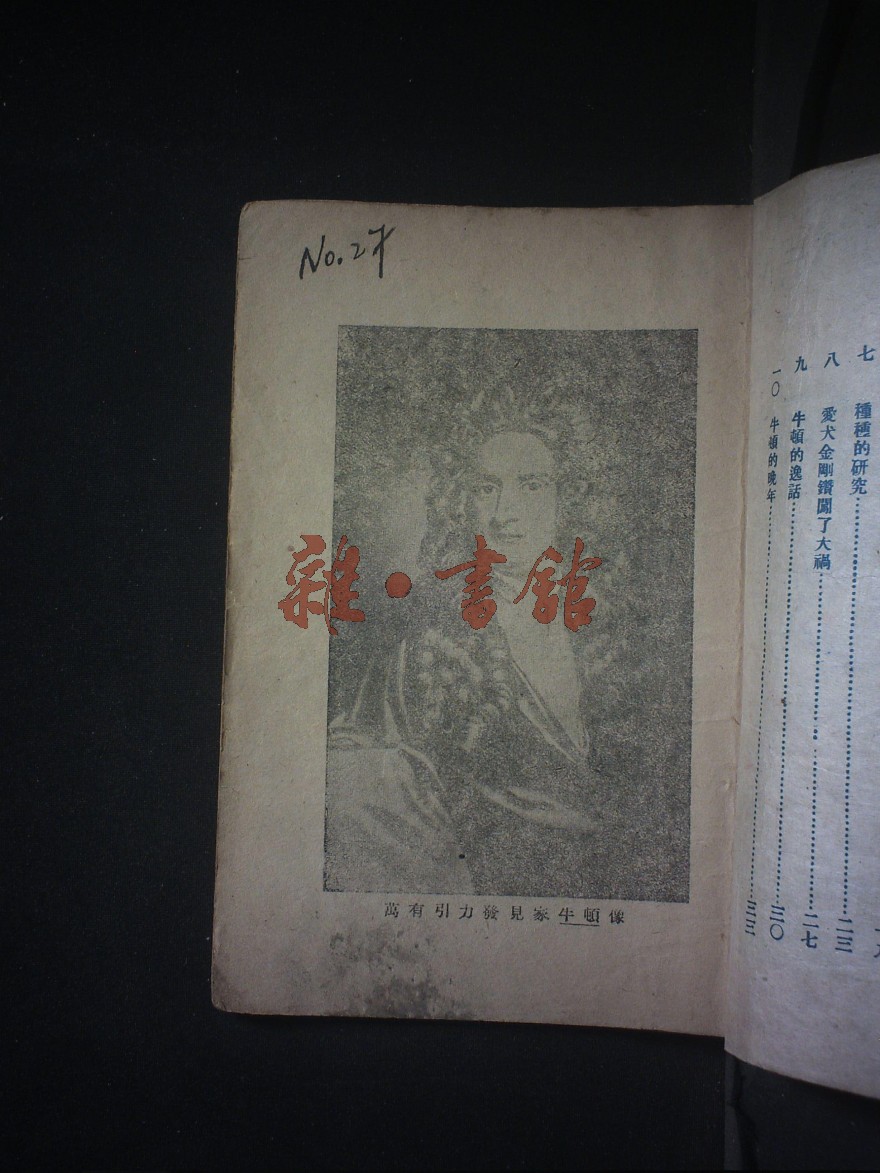 No.27
雜·書館
萬有引力發見家牛頓像
七 種種的研究
八 愛犬金剛鑽闖了大禍 二三
九 牛頓的逸話 二七
一〇 牛頓的晚年 三〇
三三